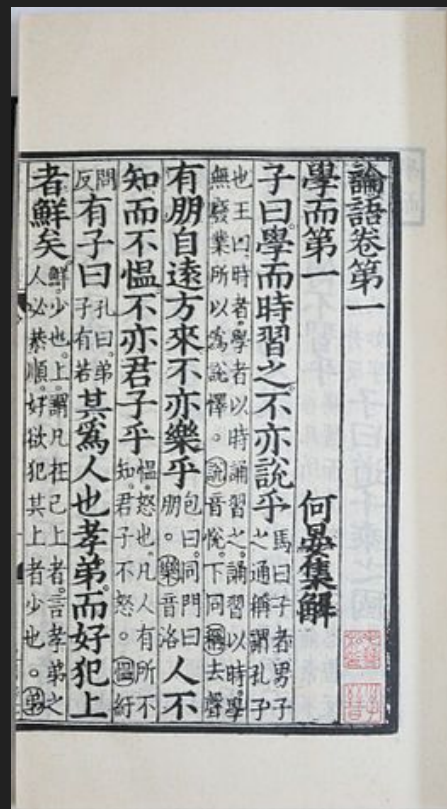 論語卷第一
學而第一 何晏集解
子曰學而時習之不亦說乎 馬曰子者男子之通稱謂孔子
也王曰時者學者以時誦習之誦習以時學無廢業所以爲說懌。說音悅下同稱去聲
有朋自遠方來不亦樂乎 包曰同門曰朋。樂音洛 人不
知而不慍不亦君子乎 慍怒也凡人有所不知君子不怒。慍紆
問反 有子曰 孔曰弟子有若 其爲人也孝弟而好犯上
者鮮矣 鮮少也上謂凡在己上者言孝弟之人必恭順好欲犯其上者少也。弟